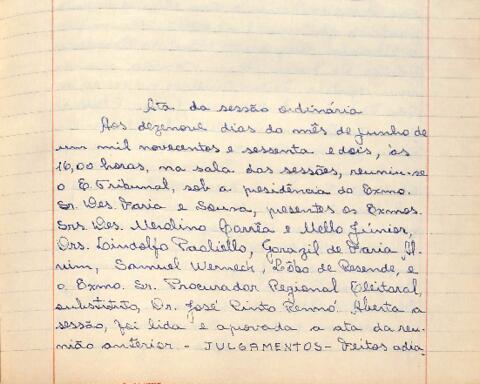 Ata da sessão ordinária
Aos dezenove dias do mês de junho de
um mil novecentos e sessenta e dois, às
16,00 horas, na sala das sessões, reuniu-se
o E. Tribunal, sob a presidência do Exmo.
Sr. Des. Faria e Sousa, presentes os Exmos.
Srs. Des. Merolino Corrêa e Mello Júnior,
Drs. Lindolfo Paoliello, Gorazil de Faria Al-
vim, Samuel Werneck, Lôbo de Resende, e
o Exmo. Sr. Procurador Regional Eleitoral,
substituto, Dr. José Pinto Renó. Aberta a
sessão, foi lida e aprovada a ata da reu-
nião anterior - JULGAMENTOS - Feitos adia